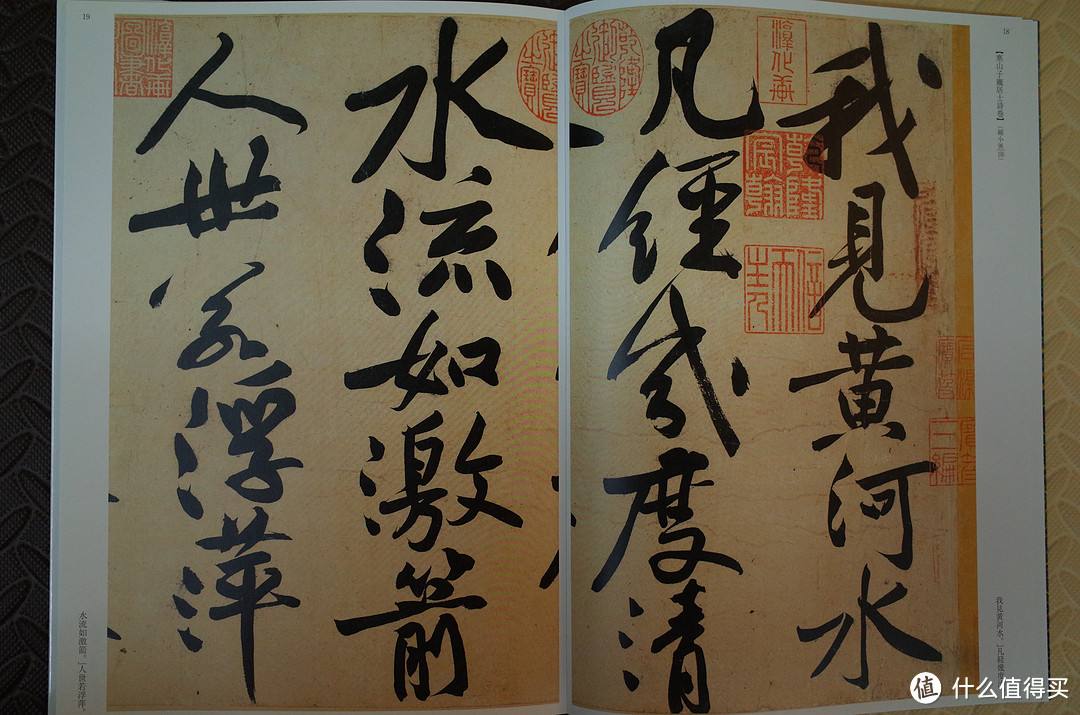 18
【寒山子龐居士詩巻】
我見黄河水
凡經幾度清
水流如激箭
人世若浮萍
淳化軒
乾隆宸翰
信天主人
我見黄河水。」凡経幾度
19
水流如激箭。」人世若浮萍。
值 什么值得买